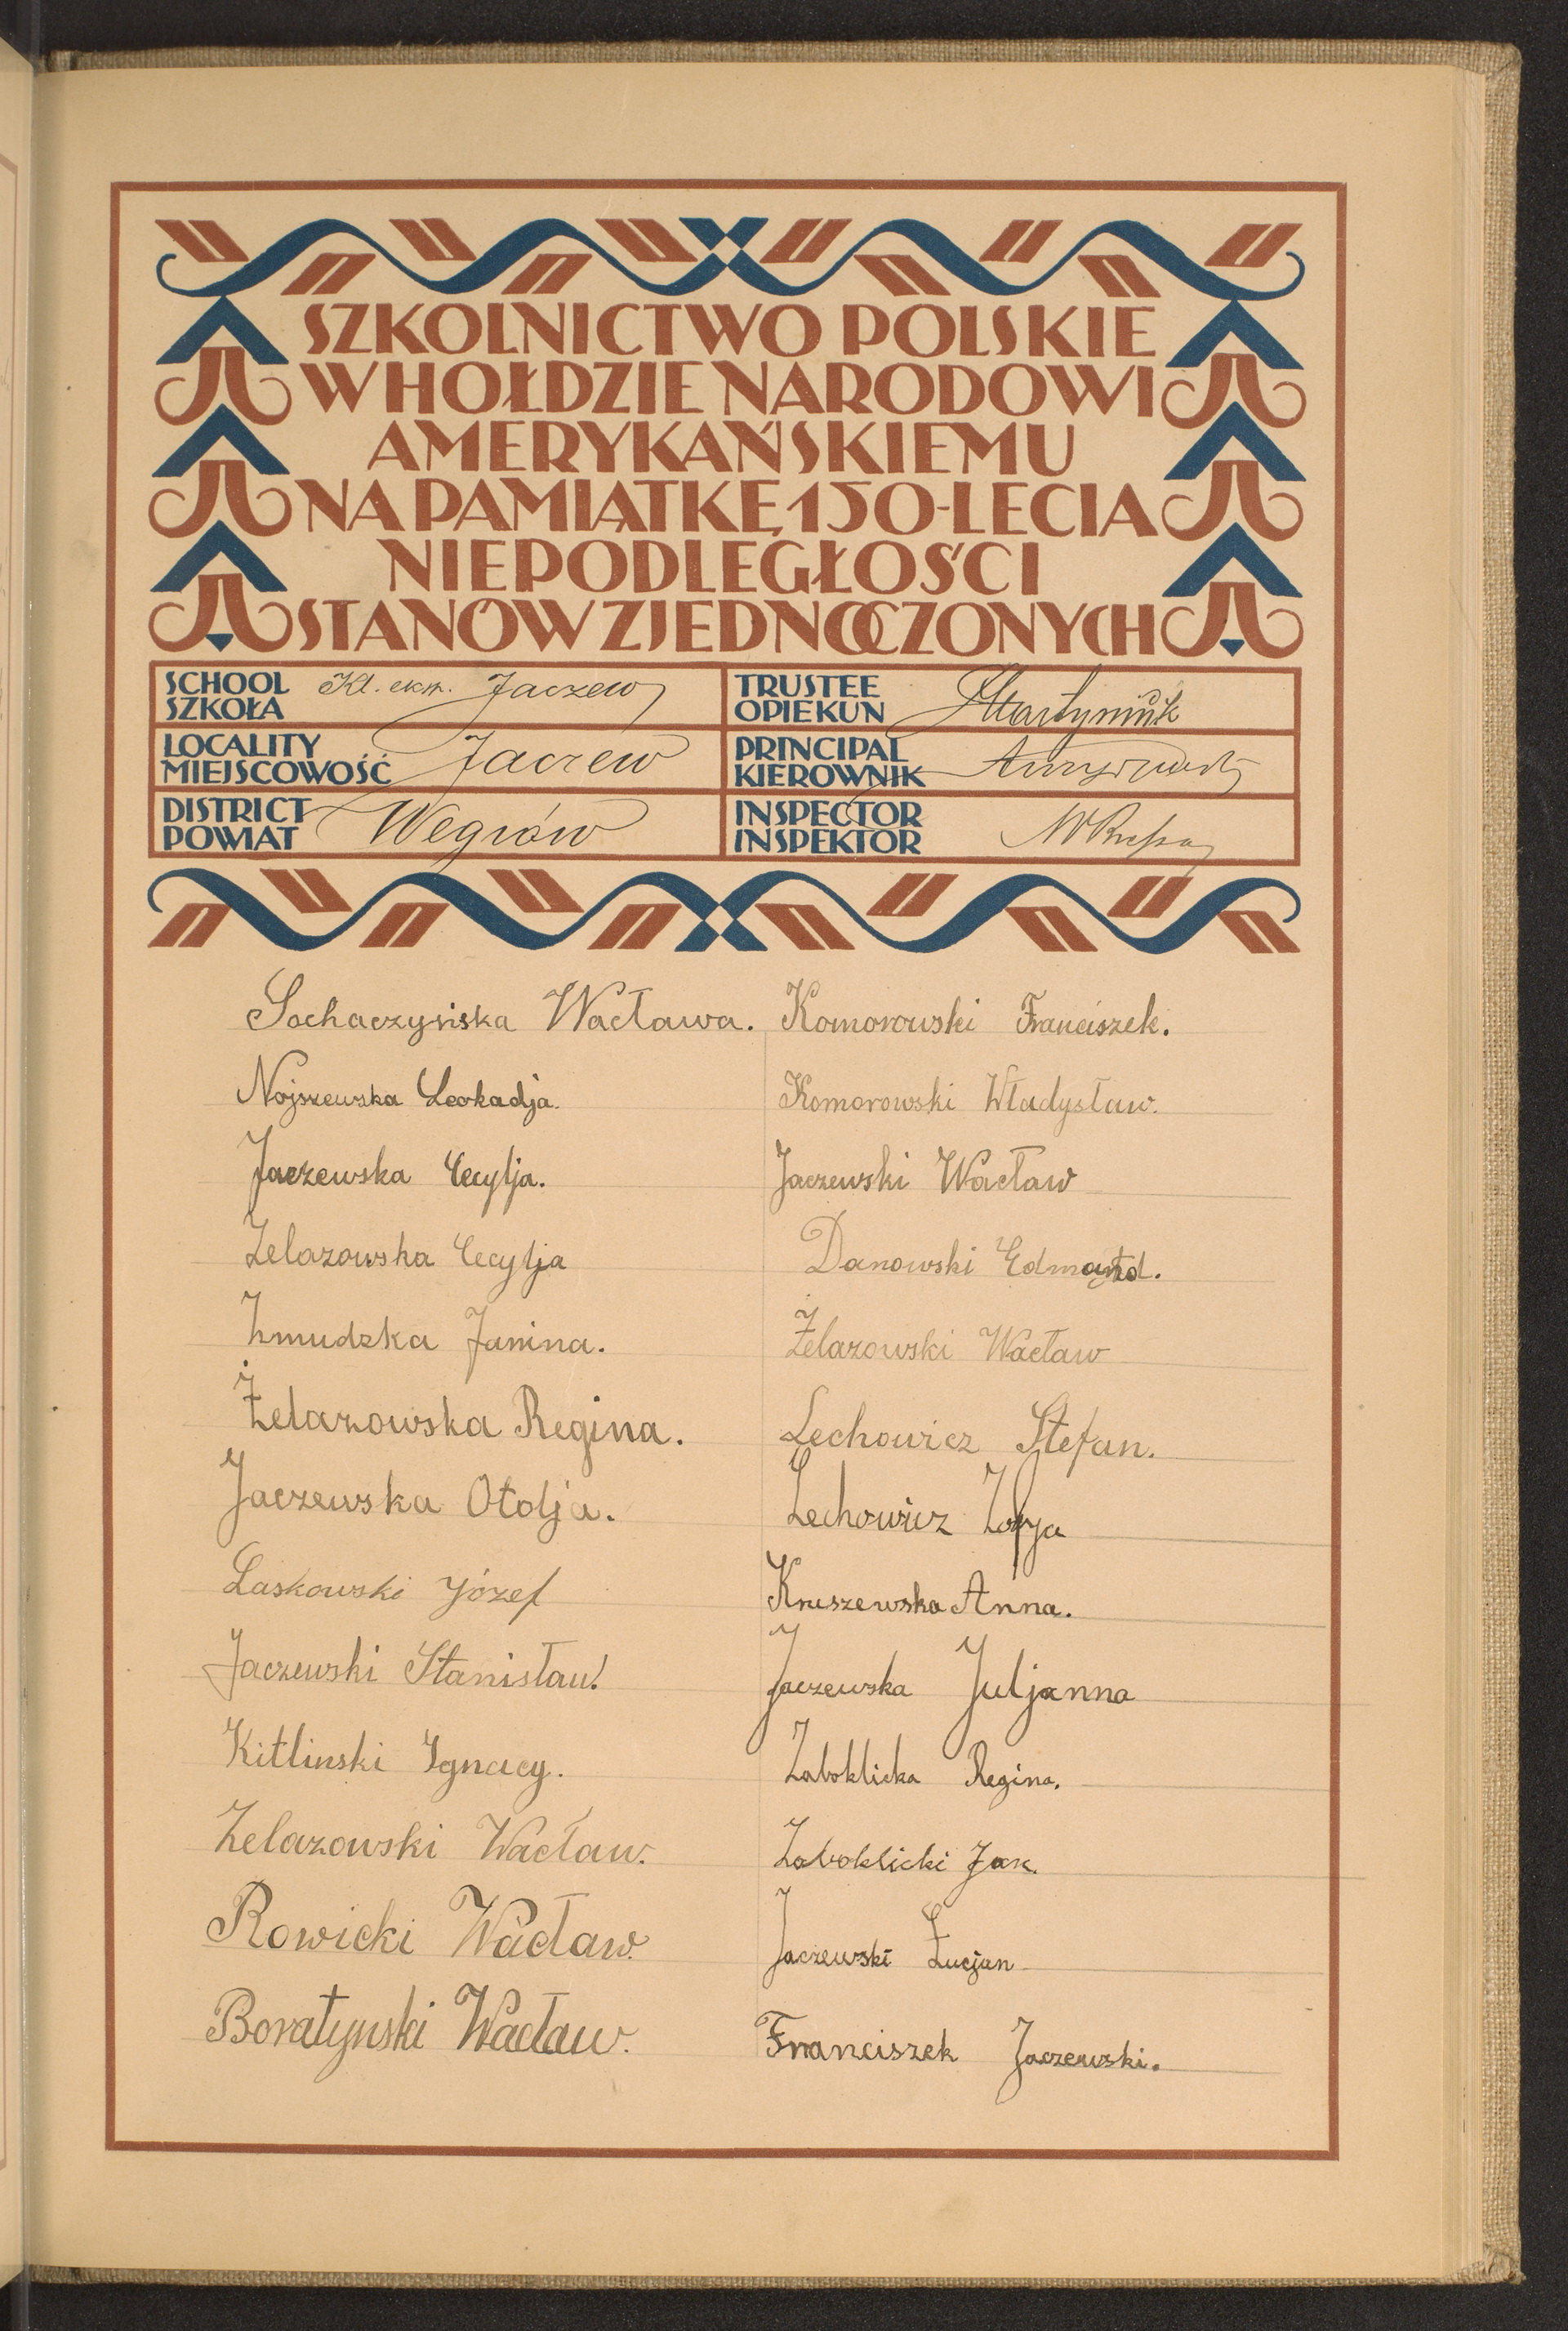 SZKOLNICTWO POLSKIE
W HOŁDZIE NARODOWI
AMERYKAŃSKIEMU
NA PAMIĄTKĘ 150-LECIA
NIEPODLEGŁOŚCI
STANÓW ZJEDNOCZONYCH
SCHOOL
SZKOŁA
Jaczew
LOCALITY
MIEJSCOWOŚĆ
Jaczew
DISTRICT
POWIAT
Węgrów
TRUSTEE
OPIEKUN
PRINCIPAL
KIEROWNIK
INSPECTOR
INSPEKTOR
Sochaczyńska Wacława.
Nojszewska Leokadja.
Jaczewska Cecylja.
Zelazowska Cecylja
Zmudzka Janina.
Żelazowska Regina.
Jaczewska Otolja.
Laskowski Józef
Jaczewski Stanisław!
Kitlinski Ignacy.
Zelazowski Wacław.
Rowicki Wacław.
Boratynski Wacław.
Komorowski Franciszek.
Komorowski Władysław.
Jaczewski Wacław
Danowski Edmond.
Żelazowski Wacław
Lechowicz Stefan.
Lechowicz Zofja
Kruszewska Anna.
Jaczewska Juljanna
Zaboklicka Regina.
Zaboklicki Jan.
Jaczewski Lucjan
Franciszek Jaczewski.